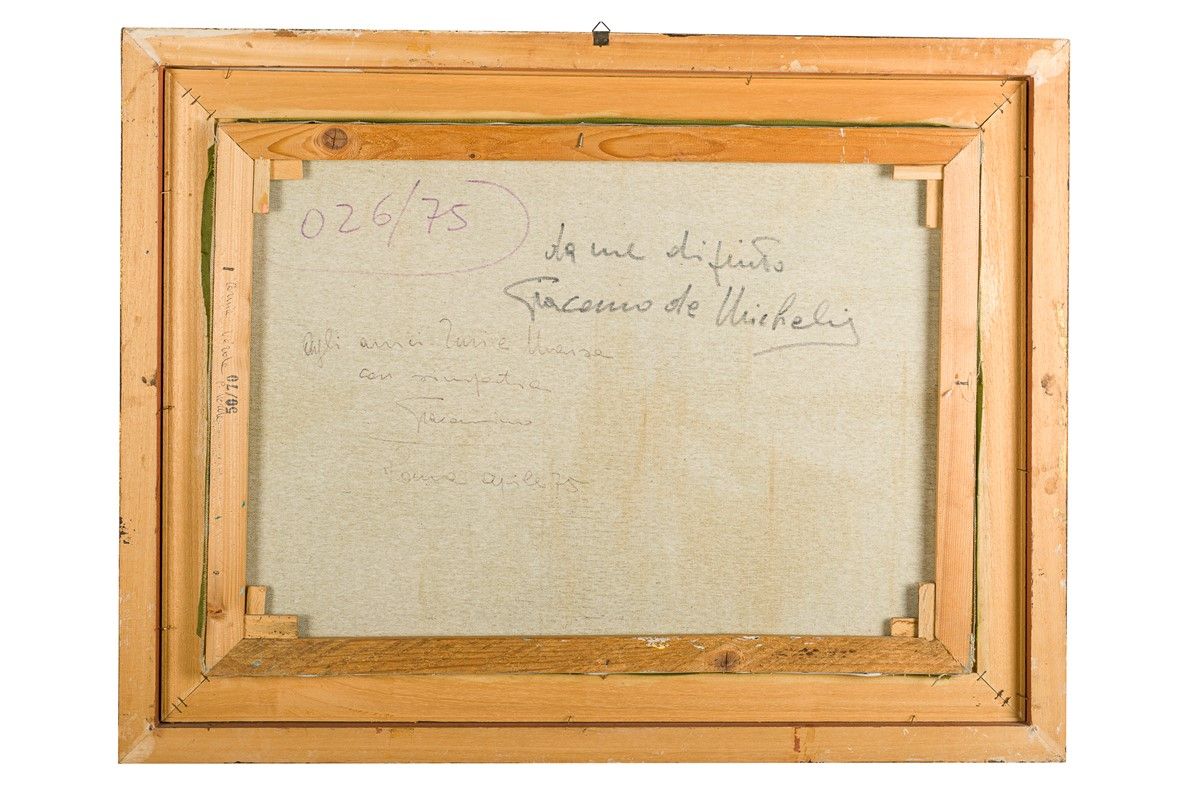 026/75
da me dipinto
Giacomo de Michelis
agli amici
con simpatia
Giacomino
Roma aprile 75
50/70